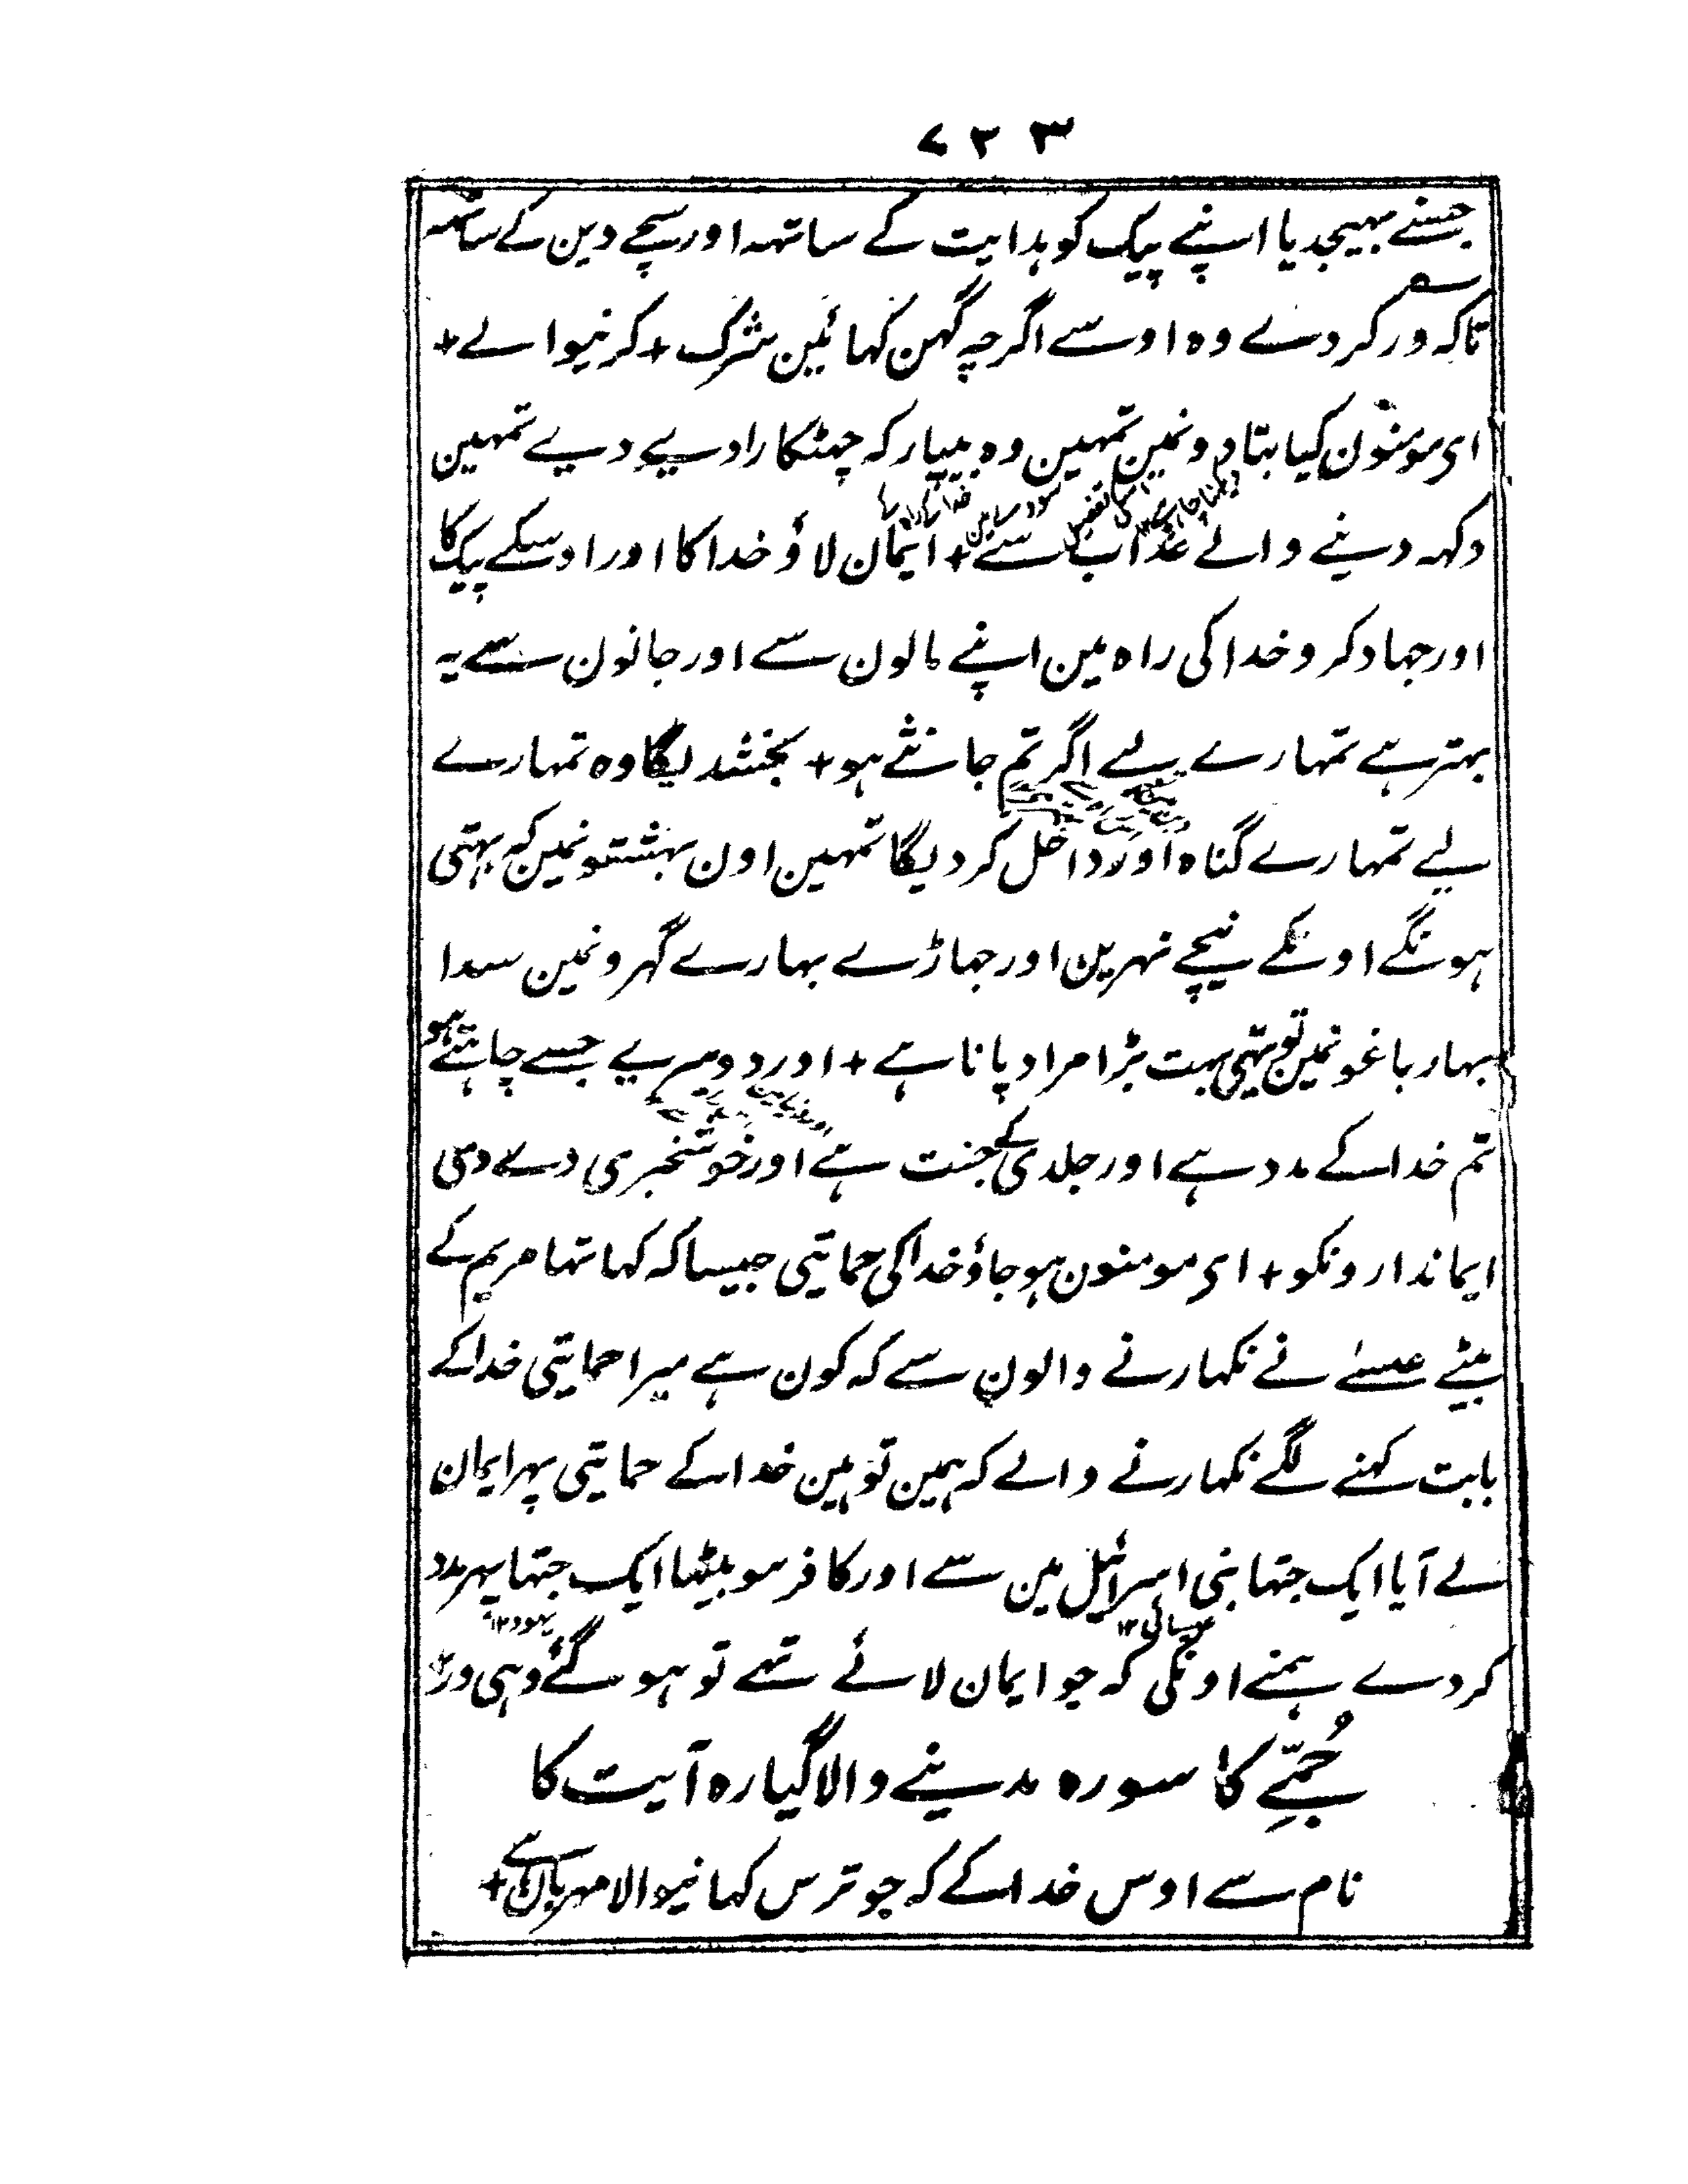 ۷۲۳
جسنے بہیجدیا اپنے پیک کو ہدایت کے ساتہہ اور سچے دین کے ساتہہ
تاکہ ور کردے وہ اوسے اگرچہ گہن کہائین شرک + کرنیوالے +
ای مومنون کیا بتادونمین تمہین وہ بیپار کہ چہٹکارا دیدے تمہین
دکہہ دینے والے عذاب سے + ایمان لاؤ خدا کا اور اوسکے پیک کا
اور جہاد کرو خدا کی راہ مین اپنے مالون سے اور جانون سے یہ
بہتر ہے تمہارے لیے اگر تم جانتے ہو + بخشدیگا وہ تمہارے
لیے تمہارے گناہ اور داخل کردیگا تمہین اون بہشتونمین کہ بہتی
ہونگے اونکے نیچے نہرین اور جہاڑے بہارے گہرونمین سدا
بہار باغونمین تو یہی بہت بڑا مراد پانا ہے + اور دوسرے جسے چاہتے ہو
تم خدا کے مدد ہے اور جلدی کے جنت ہے اور خوشخبری دے دی
ایماندارونکو + ای مومنون ہوجاؤ خدا کی حمایتی جیسا کہ کہا تہا مریم کے
بیٹے عیسے نے نکہارنے والون سے کہ کون ہے میرا حمایتی خدا کے
بابت کہنے لگے نکہارنے والے کہ ہمین تو ہین خدا کے حمایتی پہر ایمان
لے آیا ایک جتہا بنی اسرائیل مین سے اور کافر ہو بیٹہا ایک جتہا پہر مدد
عیسائی ۱۲ یہود ۱۲
کردے ہمنے اونکی کہ جو ایمان لائے تہے تو ہو گئے وہی ور
جُمّے کا سورہ مدینے والا گیارہ آیت کا
نام سے اوس خدا کے کہ جو ترس کہانیوالا مہربان ہے +